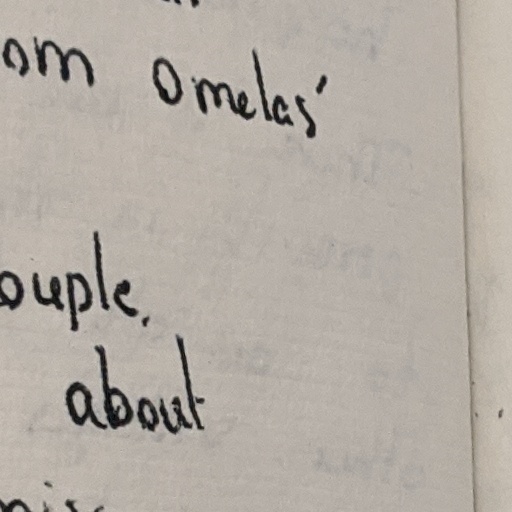 om Omelas'
ouple.
about